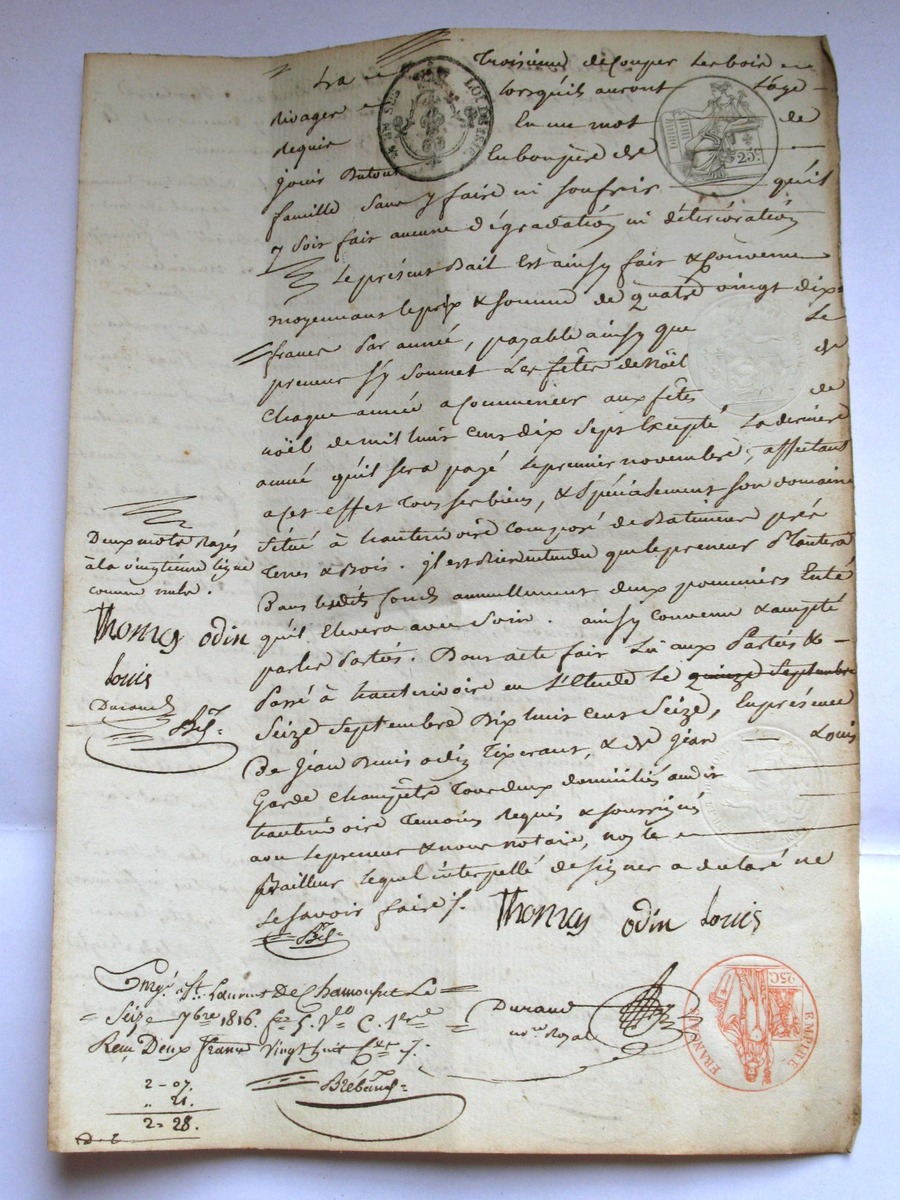 La troisième de couper les bois
rivages lorsquils auront l'age
requis En un mot de
jouir du tout En bon père de
famille sans y faire ni souffrir qu'il
y soit fait aucune dégradation ni détérioration
Le présent Bail est ainsy fait & convenu
moyennant le prix & somme de quatre vingt dix
francs par année, payable ainsy que le
preneur s'y soumet les fêtes de Noël de
chaque année a commencer aux fêtes de
noël de mil huit cent dix sept Excepté la dernière
année qu'il sera payé le premier novembre, affectant
a cet effet tous ses biens, & spécialement son domaine
situé à hauterivoire composé de Batiment prés
terres & Bois. il est bien entendu que le preneur plantera
dans lesdits fonds annuellement deux pommiers Enté
qu'il Elevera avec soin. ainsy convenu & accepté
par les parties. Dont acte fait Lu aux Parties &
Passé à hauterivoire en l'Etude le quinze Septembre
Seize Septembre Dix huit cent Seize, En présence
De Jean Denis odin tixerant, & de Jean Louis
Garde Champêtre tous deux domiciliés audit
hauterivoire temoins Requis & soussignés
avec le preneur & nous notaire, non le
Bailleur lequel interpellé de signer a déclaré ne
le savoir faire
Thomas odin Louis
Deux mots Rayés
à la vingtième ligne
comme nuls.
Thomas odin
Louis
Durand
Enrgé. a St. Laurent De Chamousset Le
Seize 7bre 1816. fo 5. Vo C. 1ere
Reçu Deux francs Vingt huit Cmes
2-07.
.. 21.
2-28.
Durand
nre Royal
LOI DE
25C.
EMPIRE FRANÇAIS
25C